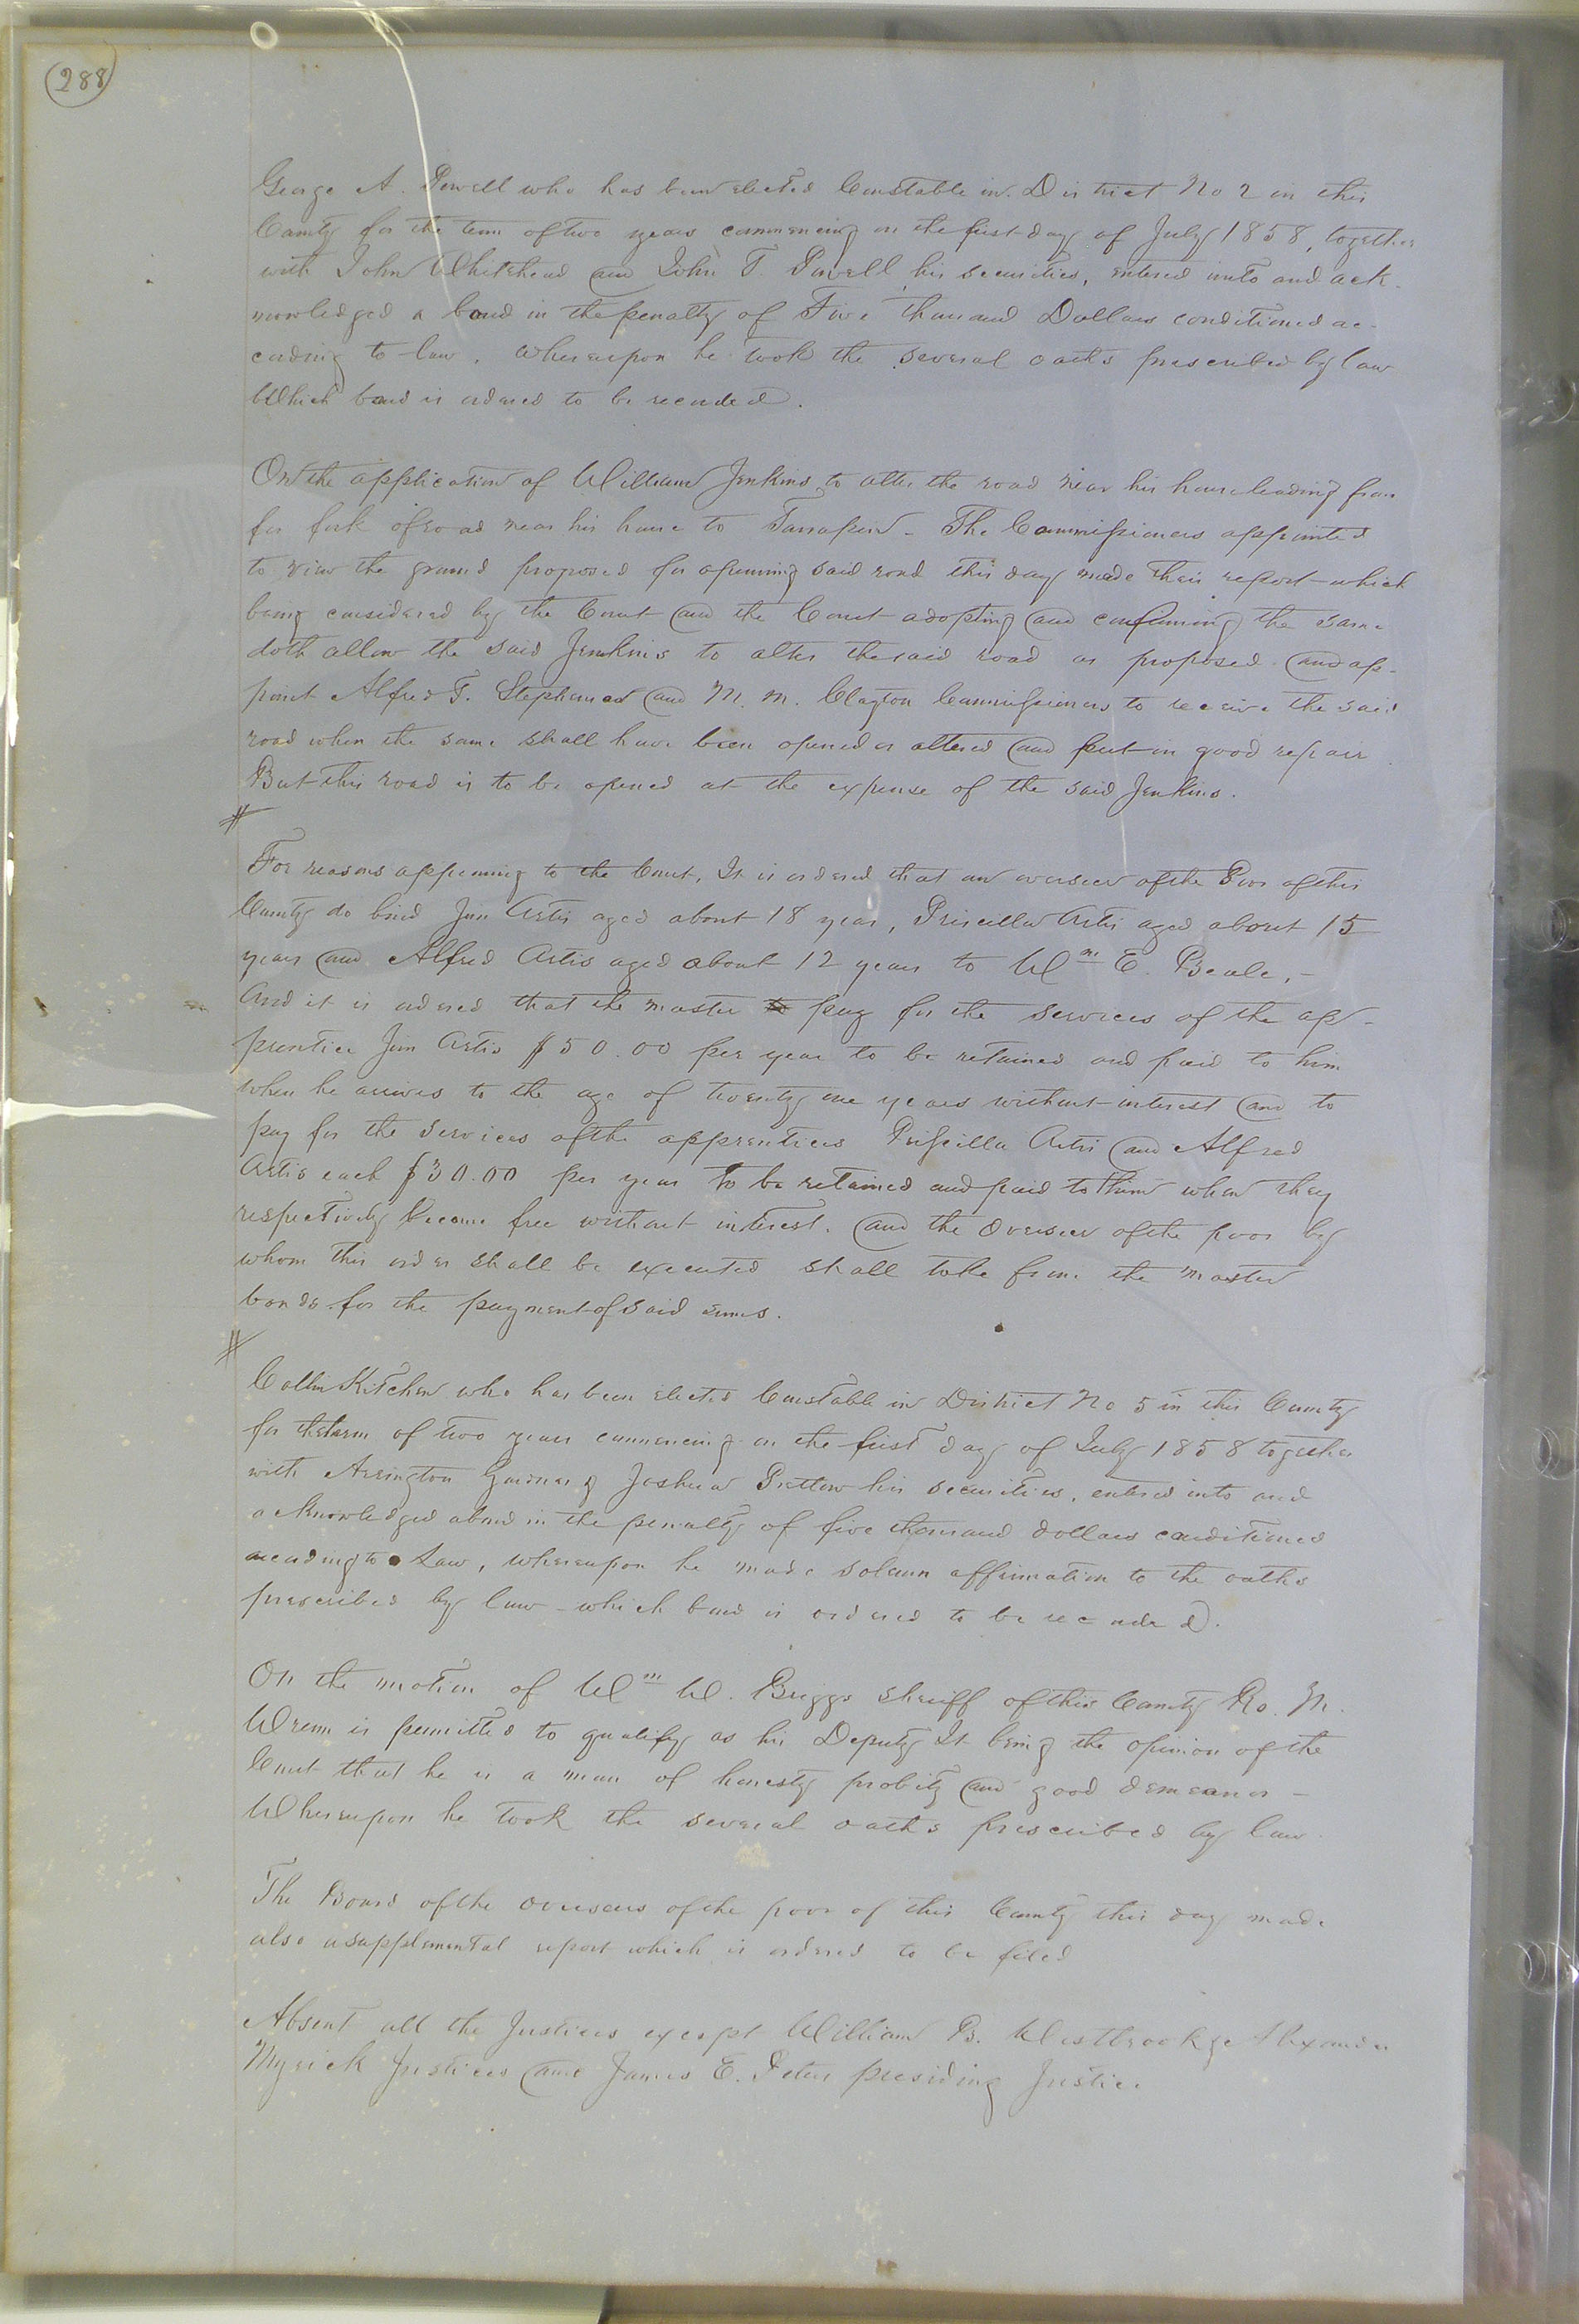 288
George A. Powell who has been elected Constable in District No 2 in this
County for the term of two years commencing on the first day of July 1858, together
with John Whitehead and John T. Powell his securities, entered into and ack-
nowledged a bond in the penalty of Five thousand Dollars conditioned ac-
cording to law. Whereupon he took the several oaths prescribed by law
Which bond is ordered to be recorded.
On the application of William Jenkins to alter the road near his house leading from
for fork of road near his house to Tarrapin - The Commissioners appointed
to view the ground proposed for opening said road this day made their report which
being considered by the Court and the Court adopting and confirming the same
doth allow the said Jenkins to alter the said road as proposed. and ap-
point Alfred T. Stephenson and M. M. Clayton Commissioners to receive the said
road when the same shall have been opened or altered and put in good repair
But this road is to be opened at the expense of the said Jenkins.
#
For reasons appearing to the Court, It is ordered that an overseer of the Poor of this
County do bind Jim Artis aged about 18 year, Priscilla Artis aged about 15
years and Alfred Artis aged about 12 years to Wm E. Beale, -
And it is ordered that the master to pay for the services of the ap-
prentice Jim Artis $50.00 per year to be retained and paid to him
when he arrives to the age of twenty one years without interest and to
pay for the services of the apprentices Priscilla Artis and Alfred
Artis each $30.00 per year to be retained and paid to them when they
respectively become free without interest. and the Overseer of the poor by
whom this order shall be executed shall take from the master
bonds for the payment of said sums.
#
Collin Kitchen who has been elected Constable in District No 5 in this County
for the term of two years commencing on the first day of July 1858 together
with Arrington Gardner & Joshua Pretlow his securities, entered into and
acknowledged a bond in the penalty of five thousand dollars conditioned
according to Law, whereupon he made solemn affirmation to the oaths
prescribed by law - which bond is ordered to be recorded.
On the motion of Wm W. Briggs Sheriff of this County Ro. M.
Wrenn is permitted to qualify as his Deputy It being the opinion of the
Court that he is a man of honesty probity and good demeanor -
Whereupon he took the several oaths prescribed by law
The Board of the Overseers of the poor of this County this day made
also a supplemental report which is ordered to be filed
Absent all the Justices except William B. Westbrook & Alexander
Myrick Justices and James E. Peters presiding Justice